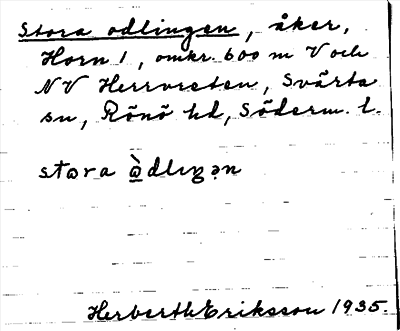 Stora odlingen, åker,
Horn 1, omkr. 600 m V och
NV Herrvreten, Svärta
sn, Rönö hd, Söderm. l.
stora
Herbert Eriksson 1935.